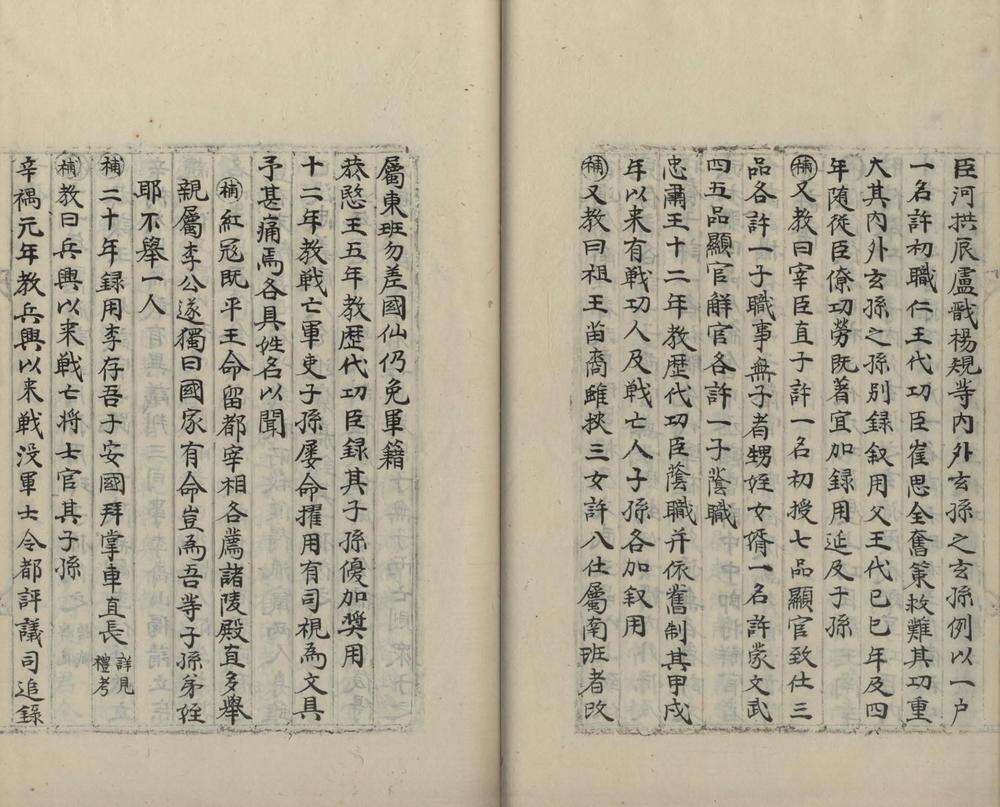 臣河拱辰盧戩楊規等内外玄孫之玄孫例以一户
一名許初職仁王代功臣崔思全奮策救難其功重
大其内外玄孫之孫别録叙用父王代己巳年及四
年随従臣僚功勞既著宜加録用延及子孫
補又教曰宰臣直子許一名初授七品顯官致仕三
品各許一子職事無子者甥姪女壻一名許蒙文武
四五品顯官觧官各許一子䕃職
忠肅王十二年教歷代功臣䕃職并依舊制其甲戍
年以来有戰功人及戰亡人子孫各加叙用
補又教曰祖王苗裔雖挾三女許入仕屬南班者改
屬東班勿差國仙仍免軍籍
恭愍王五年教歷代功臣録其子孫優加奬用
十二年教戰亡軍吏子孫屡命擢用有司視為文具
予甚痛焉各具姓名以聞
補紅冦既平王命留都宰相各薦諸陵殿直多舉
親屬李公遂獨曰國家有命豈為吾等子孫弟姪
耶不舉一人
補二十年録用李存吾子安國拜掌車直長詳見禮考
補教曰兵興以来戰亡将士官其子孫
辛禑元年教兵興以来戰没軍士令都評議司追録